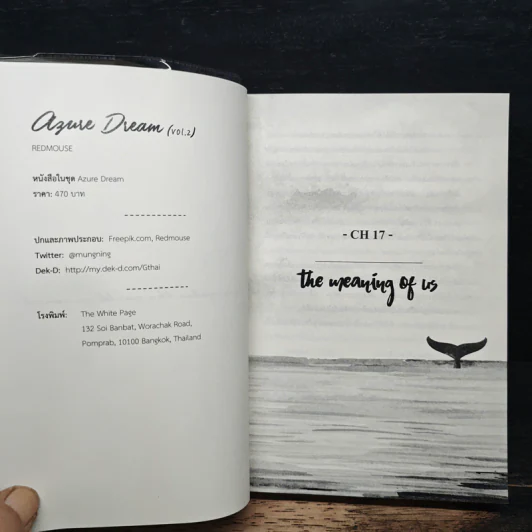 Azure Dream (vol.2)
REDMOUSE
หนังสือในชุด Azure Dream
ราคา: 470 บาท
ปกและภาพประกอบ: Freepik.com, Redmouse
Twitter: @mungning
Dek-D: http://my.dek-d.com/Gthai
โรงพิมพ์: The White Page
132 Soi Banbat, Worachak Road,
Pomprab, 10100 Bangkok, Thailand
- CH 17 -
the meaning of us